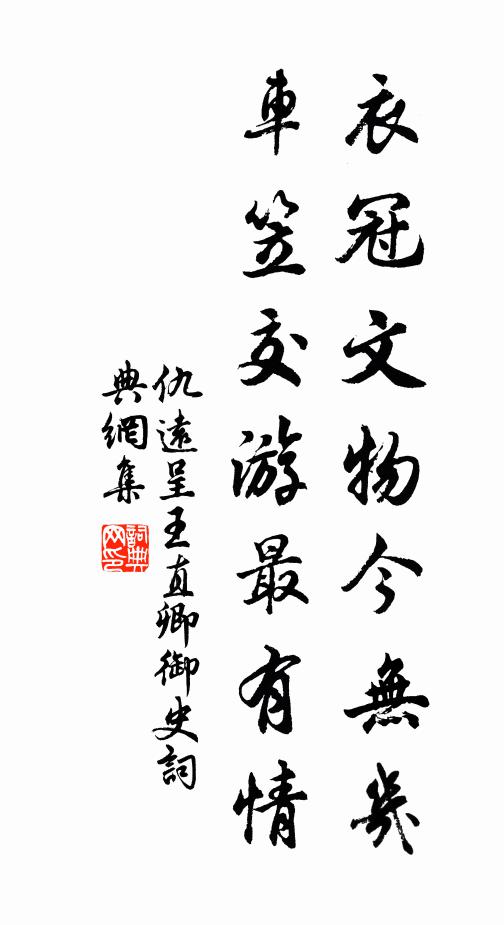 衣冠文物今無幾
車笠交游最有情
仇遠呈王直卿御史詞
典網集
詞典網印